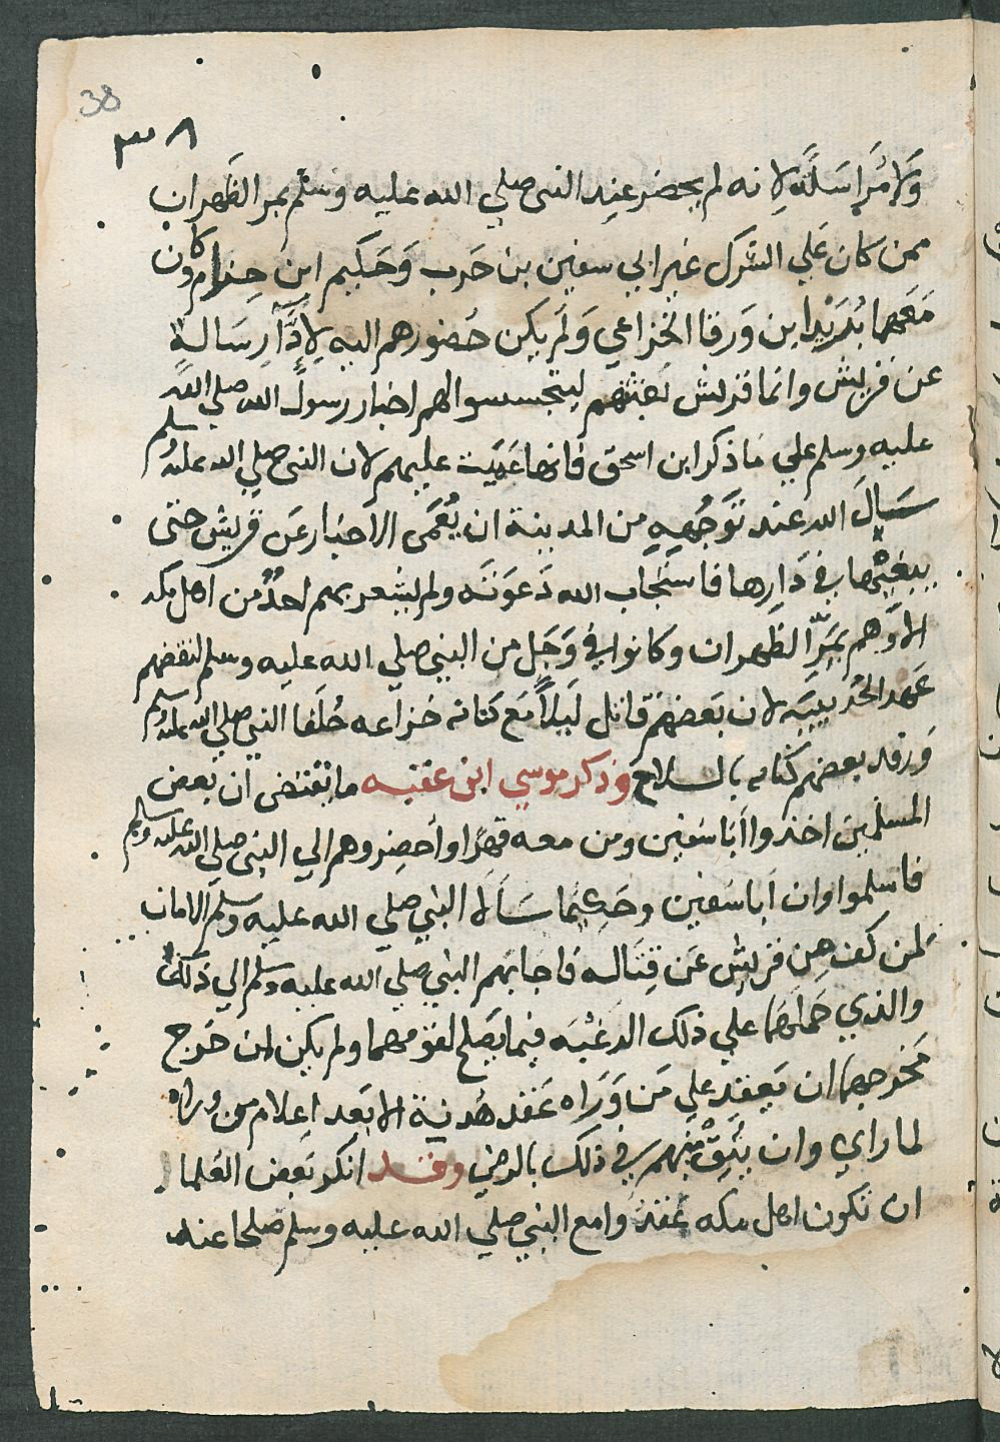 38
٣٨
وَلَا مُرَاسَلَةً لانه لم يحضر عند النبى صلي الله عليه وَسَلَّم بمر الظَهران
ممن كان عَلي الشرك غير ابي سفين بن حَرب وَحَكيم ابن حزام وكان
مَعَهما بُدَيْل ابن وَرقا الخزاعي وَلَم يكن حَضورهم اليه لِادَّآ رِسَالة
عن قريش وانما قريش بَعَثتهم ليتجسسوا لهم اخبار رسول الله صلي الله
عليه وسلم علي مَا ذكر ابن اسحق فانها عَمِيَت عليهم لان النبى صلي الله عليه وسلم
سَيالَ الله عند تَوَجُّهِهِ من المدينة ان يُعَمى الاخبار عَن قريش حتى
يبغتها في دَارِها فاستَجاب الله دَعوَته ولم يشعر بهم احدٌ من اهل مكه
الا وَهم بمَرّ الظهران وكانوا في وَجَل من النبي صلي الله عليه وسلم لنقضهم
عَهد الحُديبيَه لان بَعضهم قاتل لَيلاً مَع كنانه خزاعه حُلَفا النبي صلي الله عليه وسلم
وَرفد بعضهم كنانه بالسلاح وَذكر موسي ابن عقبه ما يقتضى ان بعض
المسلمين اخذوا أبا سَفين ومن معه قهرًا واَحضِروهم الي النبى صلى الله عليه وسلم
فاسلموا وان اَبا سَفين وحَكِيمًا سَاَلَا النبي صلي الله عليه وسلم الامان
لمن كف من قريش عَن قِتَاله فاجابَهم النبي صلي الله عليه وسلم الي ذلك
والذي حَملَهما علي ذلك الرَغْبَه فيما يَصلح لقومهما ولم يكن لمن خَرج
مَخرجهما ان يَعقد علي مَن وَرَاه عَقد هُدنية الا بَعد اِعلام من وراه
لما راي وان يَثِقْ منهم في ذلك بالرضي وقد انكر بَعض العُلما
ان تكون اهل مكه عقدُوا مع النبي صلي الله عليه وسلم صلحا عند